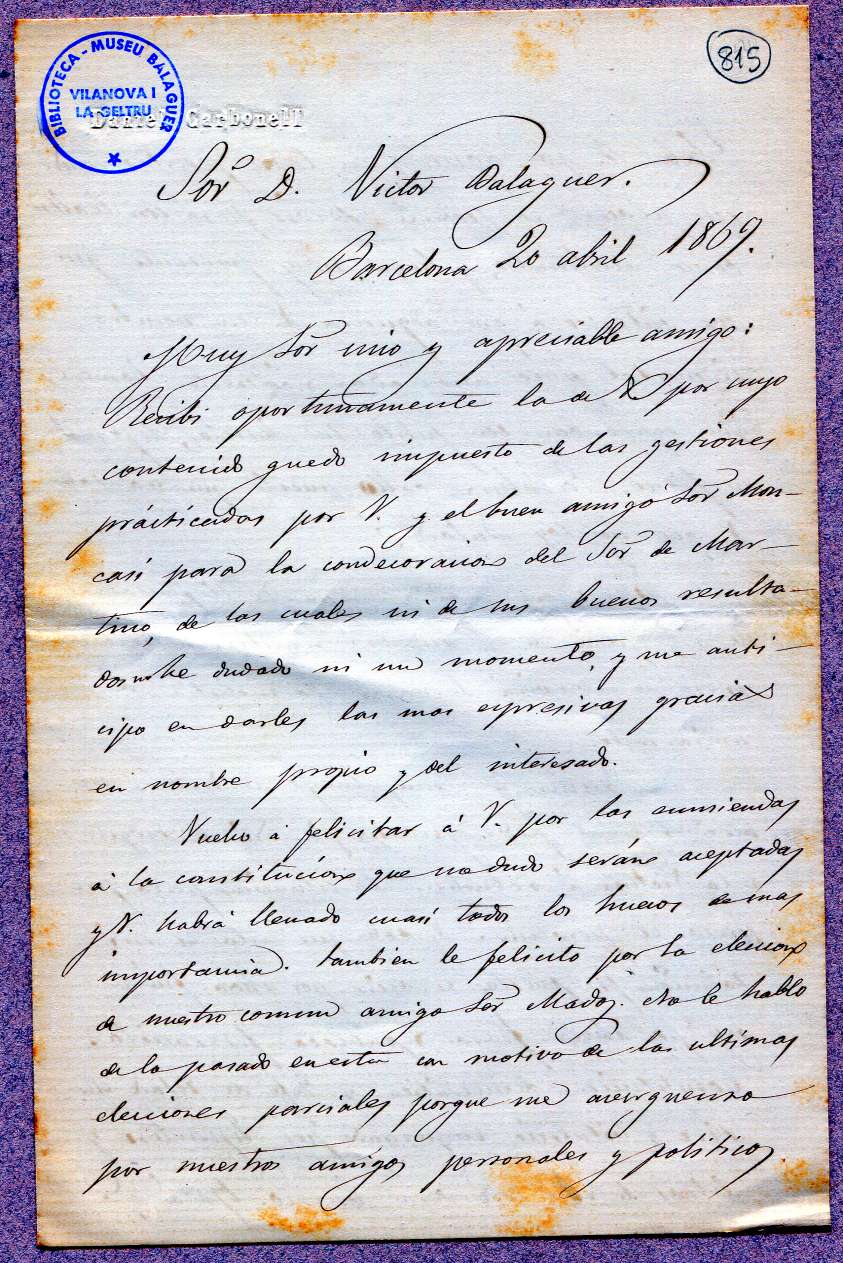 815
BIBLIOTECA - MUSEU BALAGUER
VILANOVA I
LA GELTRU
Daniel Carbonell
Sor D. Victor Balaguer.
Barcelona 20 abril 1869.
Muy Sor mio y apreciable amigo:
Recibi oportunamente la de V. por cuyo
contenido quedo impuesto de las gestiones
prácticadas por V. y el buen amigo Sor Mon-
casi para la condecoracion del Sor de Mar-
tino, de las cuales ni de sus buenos resulta-
dos no he dudado ni un momento, y me anti-
cipo en darles las mas espresivas gracias
en nombre propio y del interesado.
Vuelvo á felicitar á V. por las enmiendas
á la constitucion que no dudo serán aceptadas
y V. habrá llenado cuasi todos los huecos de mas
importancia. tambien le felicito por la eleccion
de nuestro comun amigo Sor Madoz. No le hablo
de lo pasado en esta con motivo de las ultimas
elecciones parciales porque me averguenso
por nuestros amigos personales y politicos,